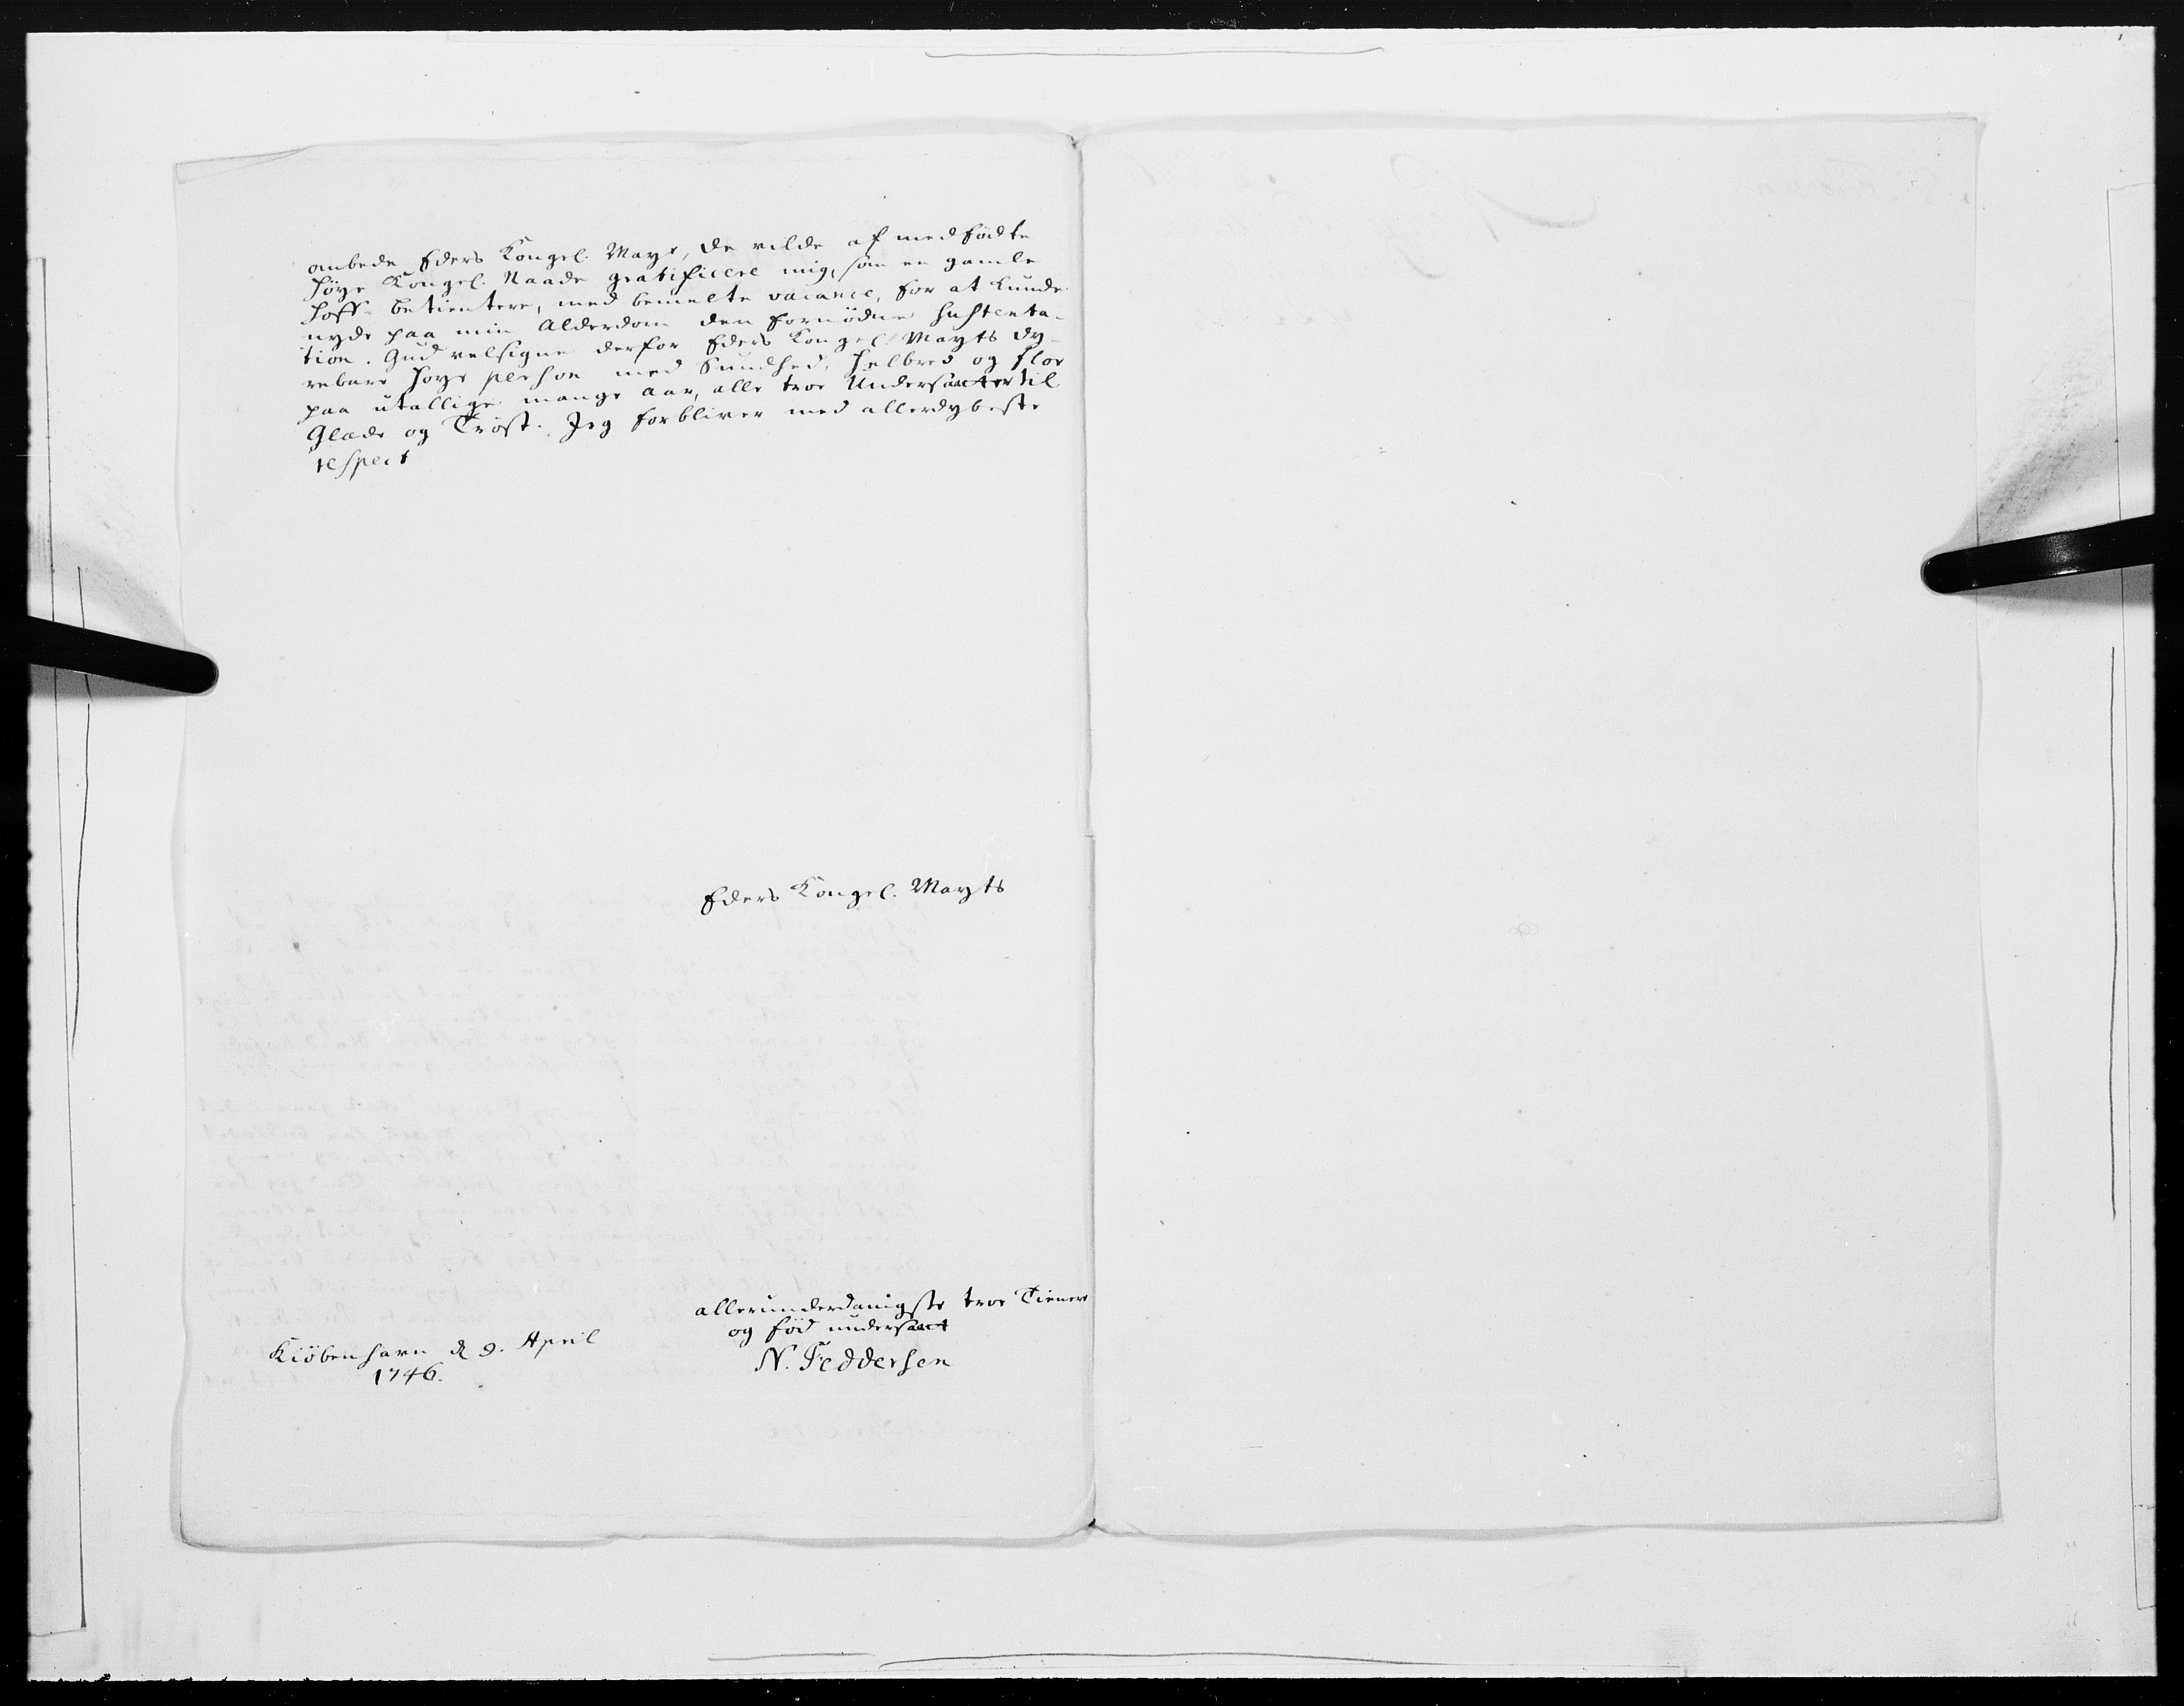 anbede Eders Kongel. May:t, De vilde af medfødte
høye Kongel. Naade gratificere mig, som en gamle
Hoff-betientere, med bemelte vacance, for at kunde
nyde paa min Alderdom den fornødne sustenta-
tion. Gud velsigne derfor Eders Kongel. Mayts dy-
rebare høye person med Sundhed, Helbred og flor
paa utallige mange Aar, alle troe Undersaatter til
Glæde og Trøst. Jeg forbliver med allerdybeste
respect
Eders Kongel. Mayts
allerunderdanigste troe Tienere
og fød undersaat
N. Feddersen
Kiøbenhavn d 9. April
1746.